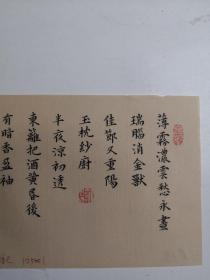 薄霧濃雲愁永晝
瑞腦消金獸
佳節又重陽
玉枕紗廚
半夜涼初透
東籬把酒黃昏後
有暗香盈袖